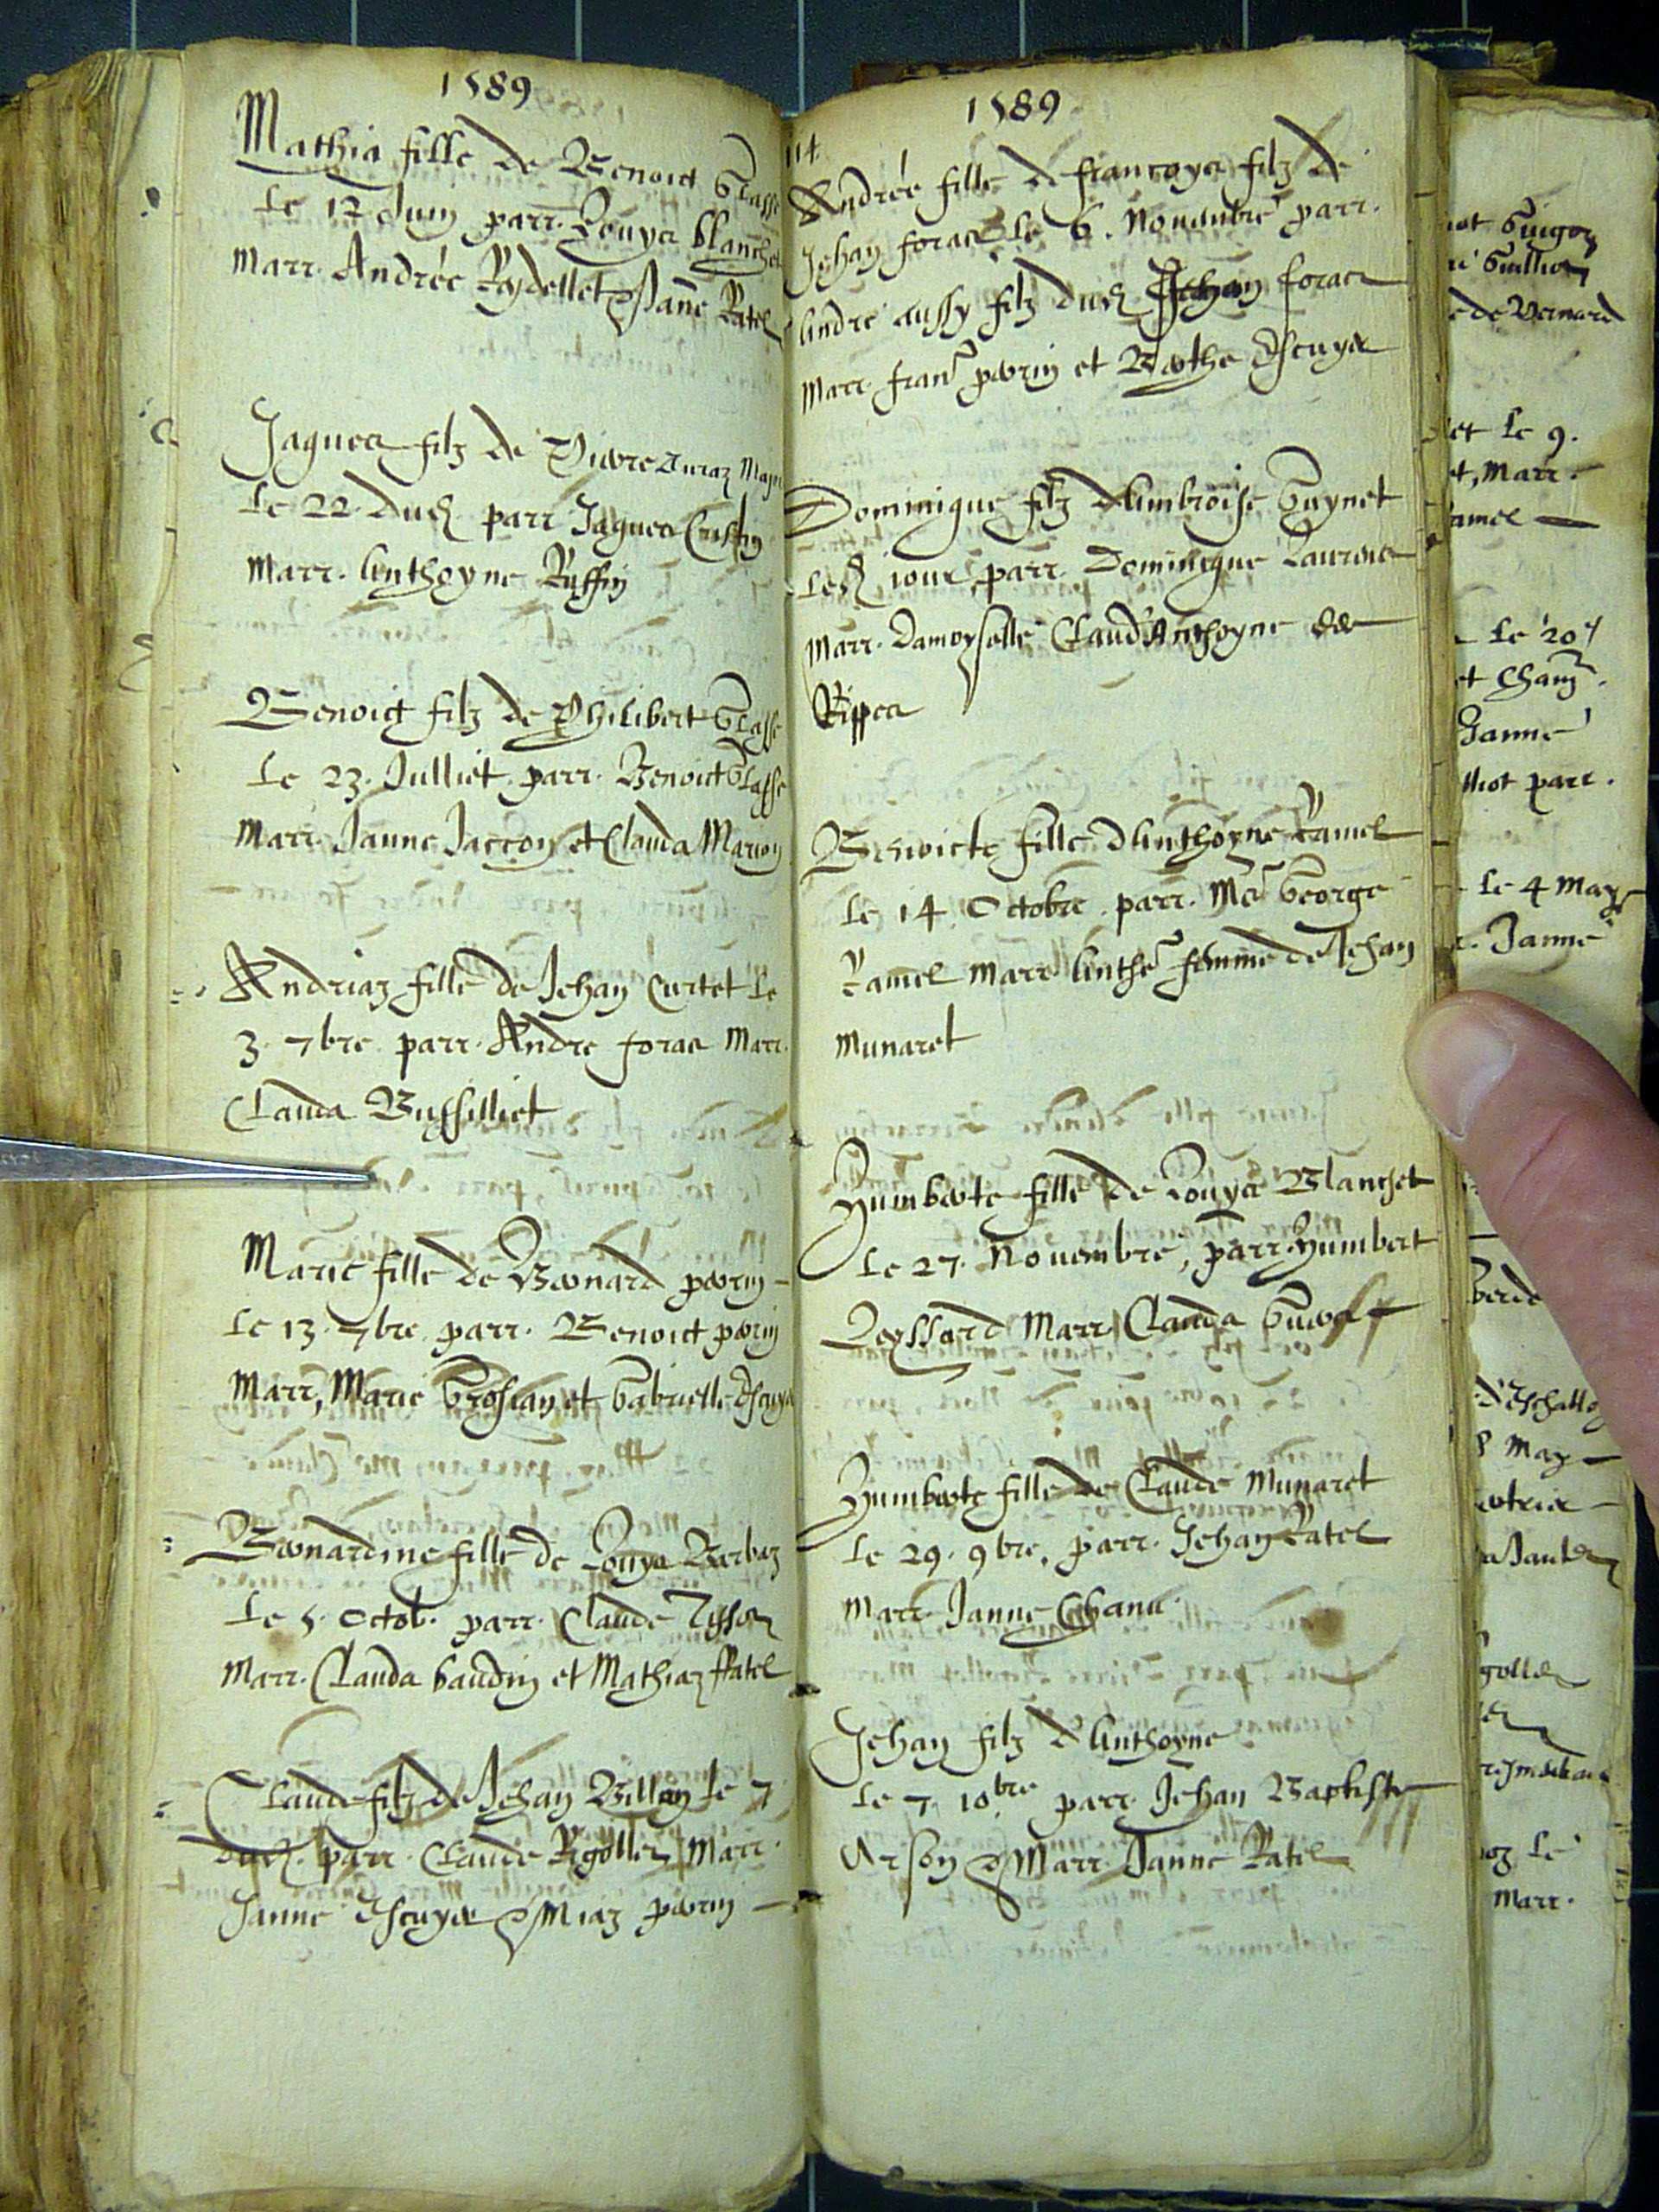 1589
Mathia fille de Benoict Glasse
Le 12 Juin parr. Louys blanchet
Marr. Andrée Rydellet & Janne Ratel
Jaques filz de Pierre Juraz
Le 22 dud. parr Jaques Cristin
Marr. Anthoyne Ruffin
Benoict filz de Philibert Glasse
Le 23. Julliet. parr. Benoict Glasse
Marr. Janne Jarron et Clauda Marion
Andriaz fille de Jehan Curtet Le
3. 7bre. parr. Andre foras Marr.
Clauda Bussilliet
Marie fille de Bernard perrin
Le 13. 7bre. parr. Benoict perrin
Marr, Marie Grosjan et Gabrielle Escuyer
Bernardine fille de Louys Barbaz
Le 5. Octob. parr. Claude Tisson
Marr. Clauda baudin et Mathiaz Ratel
Claude filz de Jehan Billon Le 7
dud. parr. Claude Rigollet Marr.
Janne Escuyer & Miaz perrin
1589
114.
Andrée fille de francoys filz de
Jehan foras Le 6. Novembre parr.
Andre aussy filz dud Jehan foras
Marr. fran perrin et Berthe Escuyer
Dominique filz dAmbroise Guynet
Led jour parr. Dominique Laurens
Marr. Damoyselle Claud'Anthoyne des
Rippes
Benoicte fille dAnthoyne Ramel
Le 14 Octobre. parr. Me George
Ramel Marr Anthe femme de Jehan
Munaret
Humberte fille de Louys Blanchet
Le 27. Novembre, parr. Humbert
Marr. Clauda
Humberte fille de Claude Munaret
Le 29. 9bre, parr. Jehan Ratel
Marr. Janne Chanu.
Jehan filz dAnthoyne
Le 7 10bre parr. Jehan Baptiste
Arson & Marr. Janne Ratel
et Le 9.
et, Marr.
Le 20
et
Janne
parr.
Le 4 May
Janne
May
Le
Marr.